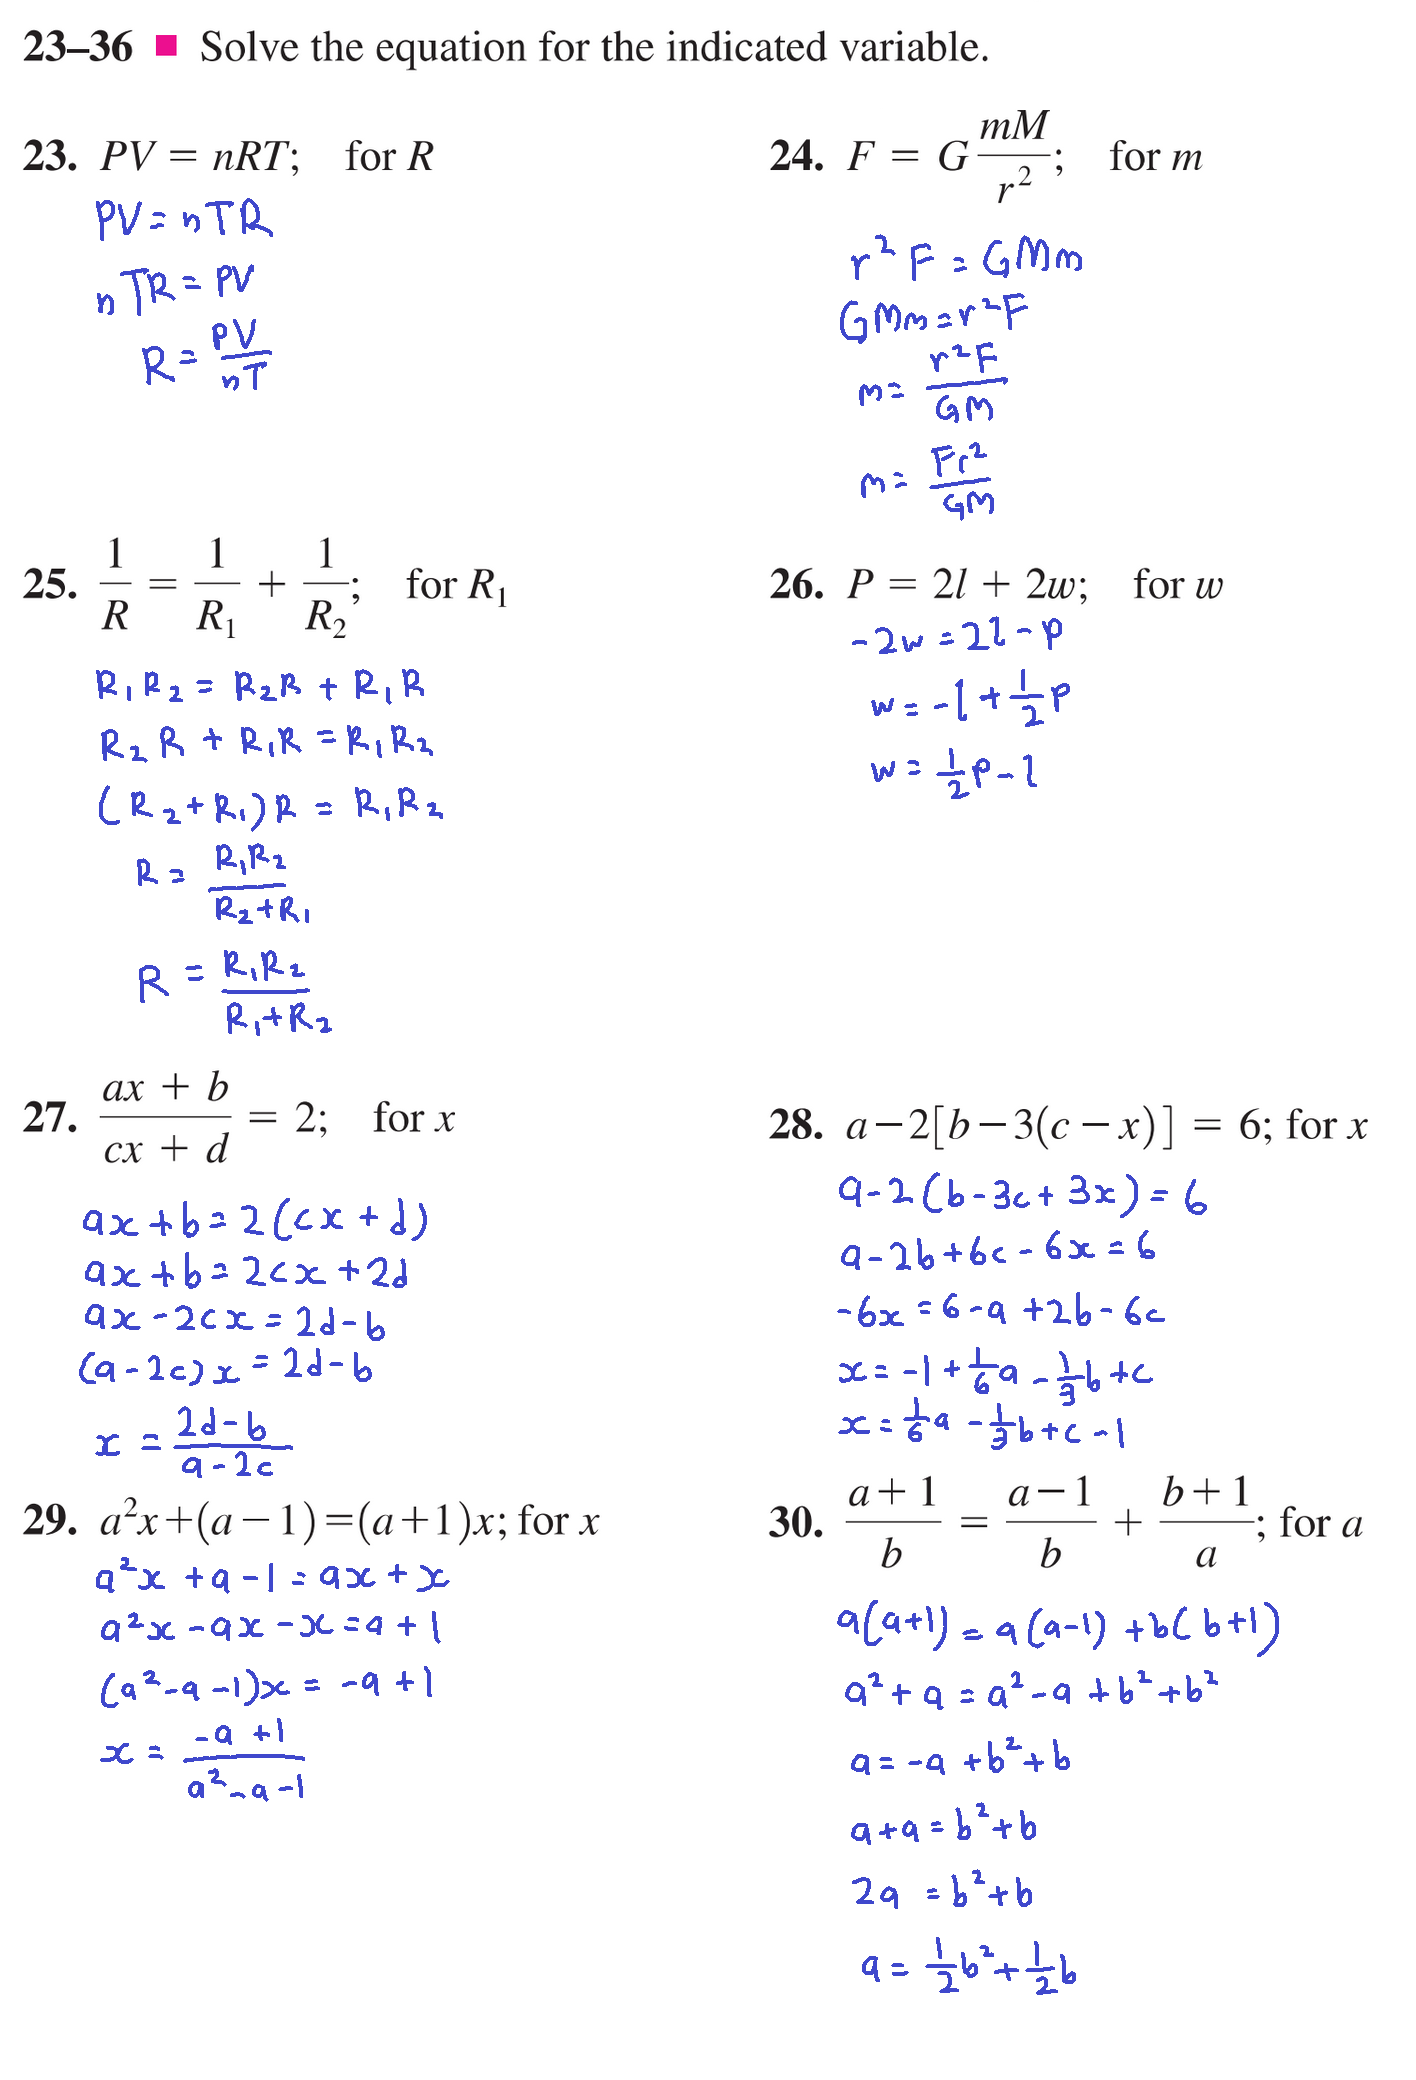 23–36 ■ Solve the equation for the indicated variable.
23. PV = nRT; for R
PV = nTR
nTR = PV
R = PV/nT
24. F = G mM/r²; for m
r²F = GMm
GMm = r²F
m = r²F/GM
m = Fr²/GM
25. 1/R = 1/R₁ + 1/R₂; for R₁
R₁R₂ = R₂R + R₁R
R₂R + R₁R = R₁R₂
(R₂+R₁)R = R₁R₂
R = R₁R₂/(R₂+R₁)
R = R₁R₂/(R₁+R₂)
26. P = 2l + 2w; for w
-2w = 2l - P
w = -l + 1/2 P
w = 1/2 P - l
27. (ax + b)/(cx + d) = 2; for x
ax + b = 2(cx + d)
ax + b = 2cx + 2d
ax - 2cx = 2d - b
(a - 2c)x = 2d - b
x = (2d - b)/(a - 2c)
28. a − 2[b − 3(c − x)] = 6; for x
a - 2(b - 3c + 3x) = 6
a - 2b + 6c - 6x = 6
-6x = 6 - a + 2b - 6c
x = -1 + 1/6 a - 1/3 b + c
x = 1/6 a - 1/3 b + c - 1
29. a²x+(a−1)=(a+1)x; for x
a²x + a - 1 = ax + x
a²x - ax - x = a + 1
(a² - a - 1)x = -a + 1
x = (-a + 1)/(a² - a - 1)
30. (a+1)/b = (a−1)/b + (b+1)/a; for a
a(a+1) = a(a-1) + b(b+1)
a² + a = a² - a + b² + b²
a = -a + b² + b
a + a = b² + b
2a = b² + b
a = 1/2 b² + 1/2 b